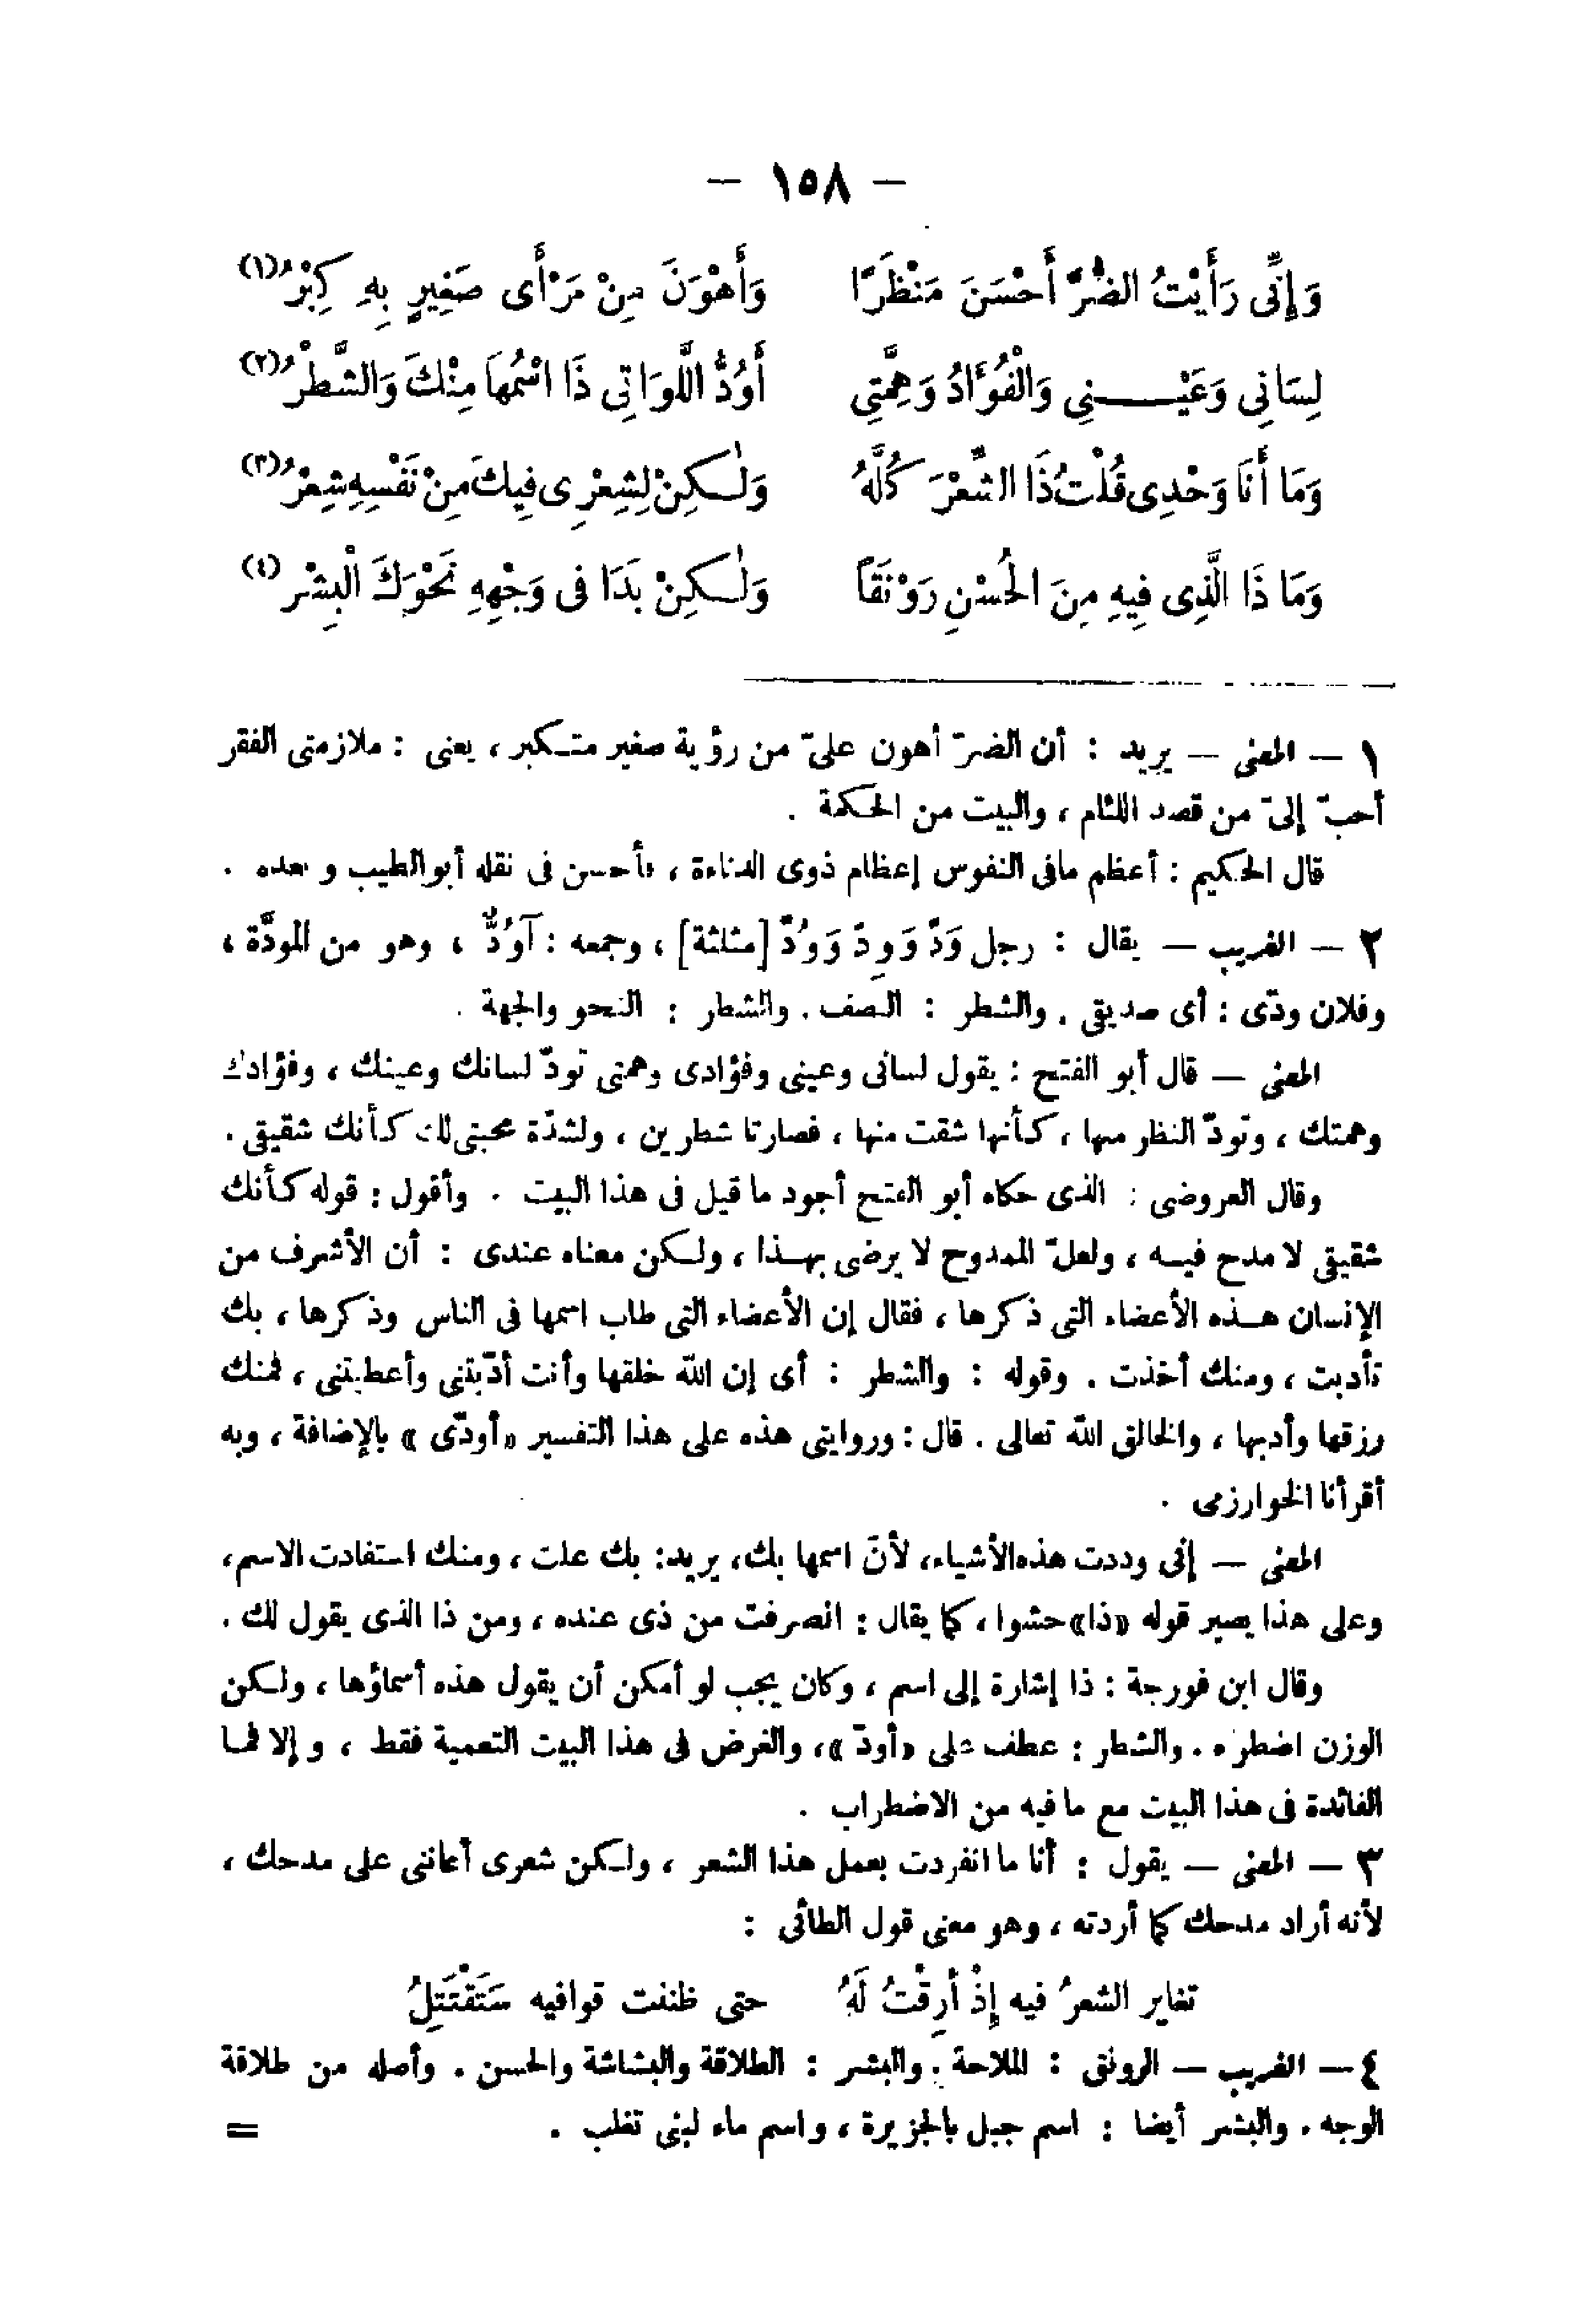 — ١٥٨ —
وَإِنِّى رَأَيْتُ الضُّرَّ أَحْسَنَ مَنْظَرًا وَأَهْوَنَ مِنْ مَرْأَى صَغِيرٍ بِهِ كِبْرُ (١)
لِسَانِى وَعَيْـــنِى وَالْفُؤَادُ وَهِمَّتِى أَوُدُّ اللَّوَاتِى ذَا اسْمُهَا مِنْكَ وَالشَّطْرُ (٢)
وَمَا أَنَا وَحْدِى قُلْتُ ذَا الشِّعْرَ كُلَّهُ وَلٰـكِنْ لِشِعْرِى فِيكَ مِنْ نَفْسِهِ شِعْرُ (٣)
وَمَا ذَا الَّذِى فِيهِ مِنَ الْحُسْنِ رَوْنَقًا وَلٰـكِنْ بَدَا فِى وَجْهِهِ نَحْوَكَ الْبِشْرُ (٤)
١ — المعنى — يريد : أن الضرّ أهون علىّ من رؤية صغير متـكبر ، يعنى : ملازمتى الفقر
أحبّ إلىّ من قصد اللئام ، والبيت من الحكمة .
قال الحكيم : أعظم مافى النفوس إعظام ذوى الدناءة ، فأحسن فى نقله أبو الطيب و بعده .
٢ — الغريب — يقال : رجل وَدّ وَوِدّ وَوُدّ [مثلثة] ، وجمعه : آوُدٌّ ، وهو من المودَّة ،
وفلان ودّى : أى صديقى . والشطر : النصف . والشطر : النحو والجهة .
المعنى — قال أبو الفتح : يقول لسانى وعينى وفؤادى وهمتى تودّ لسانك وعينك ، وفؤادك
وهمتك ، وتودّ النظر منها ، كأنها شقت منها ، فصارتا شطرين ، ولشدّة محبتى لك كأنك شقيقى .
وقال العروضى : الذى حكاه أبو الفتح أجود ما قيل فى هذا البيت . وأقول : قوله كأنك
شقيقى لا مدح فيـه ، ولعلّ الممدوح لا يرضى بهـذا ، ولـكن معناه عندى : أن الأشرف من
الإنسان هـذه الأعضاء التى ذكرها ، فقال إن الأعضاء التى طاب اسمها فى الناس وذكرها ، بك
تأدبت ، ومنك أخذت . وقوله : والشطر : أى إن الله خلقها وأنت أدّبتنى وأعطيتنى ، فمنك
رزقها وأدبها ، والخالق الله تعالى . قال : وروايتى هذه على هذا التفسير «أودّى» بالإضافة ، وبه
أقرأنا الخوارزمى .
المعنى — إنى وددت هذه الأشياء، لأنّ اسمها بك، يريد: بك علت ، ومنك استفادت الاسم،
وعلى هذا يصير قوله «ذا» حشوا ، كما يقال : انصرفت من ذى عنده ، ومن ذا الذى يقول لك .
وقال ابن فورجة : ذا إشارة إلى اسم ، وكان يجب لو أمكن أن يقول هذه أسماؤها ، ولـكن
الوزن اضطره . والشطر : عطف على «أودّ» ، والغرض فى هذا البيت التعمية فقط ، و إلا فمـا
الفائدة فى هذا البيت مع ما فيه من الاضطراب .
٣ — المعنى — يقول : أنا ما انفردت بعمل هذا الشعر ، ولـكن شعرى أعاننى على مدحك ،
لأنه أراد مدحك كما أردته ، وهو معنى قول الطائى :
تغاير الشعرُ فيه إِذْ أرِقْتُ لَهُ حتى ظننت قوافيه سَتَقْتَتِلُ
٤ — الغريب — الرونق : الملاحة . والبشر : الطلاقة والبشاشة والحسن . وأصله من طلاقة
الوجه . والبشر أيضا : اسم جبل بالجزيرة ، واسم ماء لبنى تغلب . =